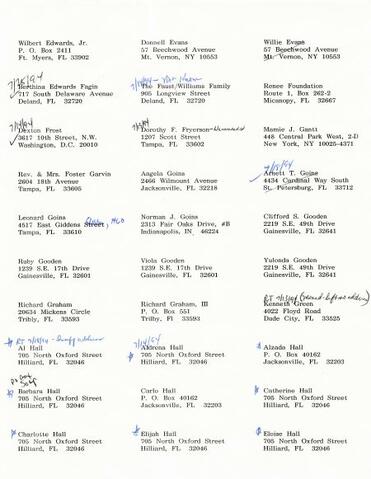 Wilbert Edwards, Jr.
P. O. Box 2411
Ft. Myers, FL 33902
Donnell Evans
57 Beechwood Avenue
Mt. Vernon, NY 10553
Willie Evans
57 Beechwood Avenue
Mt. Vernon, NY 10553
Berthina Edwards Fagin
717 South Delaware Avenue
Deland, FL 32720
The Faust/Williams Family
905 Longview Street
Deland, FL 32720
Renee Foundation
Route 1, Box 262-2
Micanopy, FL 32667
Dexton Frost
3617 10th Street, N.W.
Washington, D.C. 20010
Dorothy F. Fryerson
1207 Scott Street
Tampa, FL 33602
Mamie J. Gantt
448 Central Park West, 2-D
New York, NY 10025-4371
Rev. & Mrs. Foster Garvin
2604 18th Avenue
Tampa, FL 33605
Angela Goins
2466 Wilmount Avenue
Jacksonville, FL 32218
7/8/94
Arnett T. Goins
4434 Cardinal Way South
St. Petersburg, FL 33712
Leonard Goins
4517 East Giddens Street,
Tampa, FL 33610
Norman J. Goins
2313 Fair Oaks Drive, #B
Indianapolis, IN 46224
Clifford S. Gooden
2219 S.E. 49th Drive
Gainesville, FL 32641
Ruby Gooden
1239 S.E. 17th Drive
Gainesville, FL 32601
Viola Gooden
1239 S.E. 17th Drive
Gainesville, FL 32601
Yulonda Gooden
2219 S.E. 49th Drive
Gainesville, FL 32641
Richard Graham
20634 Mickens Circle
Tribly, FL 33593
Richard Graham, III
P. O. Box 551
Trilby, Fl 33593
Kenneth Green
4022 Floyd Road
Dade City, FL 33525
Al Hall
705 North Oxford Street
Hilliard, FL 32046
7/14/94
Aldrona Hall
705 North Oxford Street
Hilliard, FL 32046
Alzada Hall
P. O. Box 40162
Jacksonville, FL 32203
Barbara Hall
705 North Oxford Street
Hilliard, FL 32046
Carlo Hall
P. O. Box 40162
Jacksonville, FL 32203
Catherine Hall
705 North Oxford Street
Hilliard, FL 32046
Charlotte Hall
705 North Oxford Street
Hilliard, FL 32046
Elijah Hall
705 North Oxford Street
Hilliard, FL 32046
Eloise Hall
705 North Oxford Street
Hilliard, FL 32046